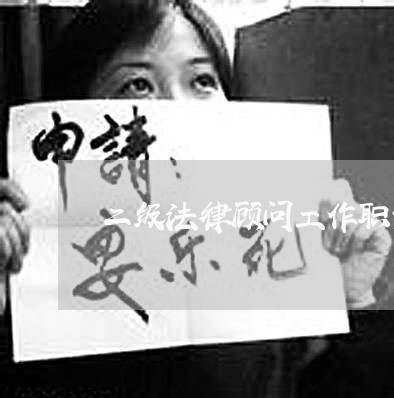 申請：
二级法律顾问工作职
要乐死